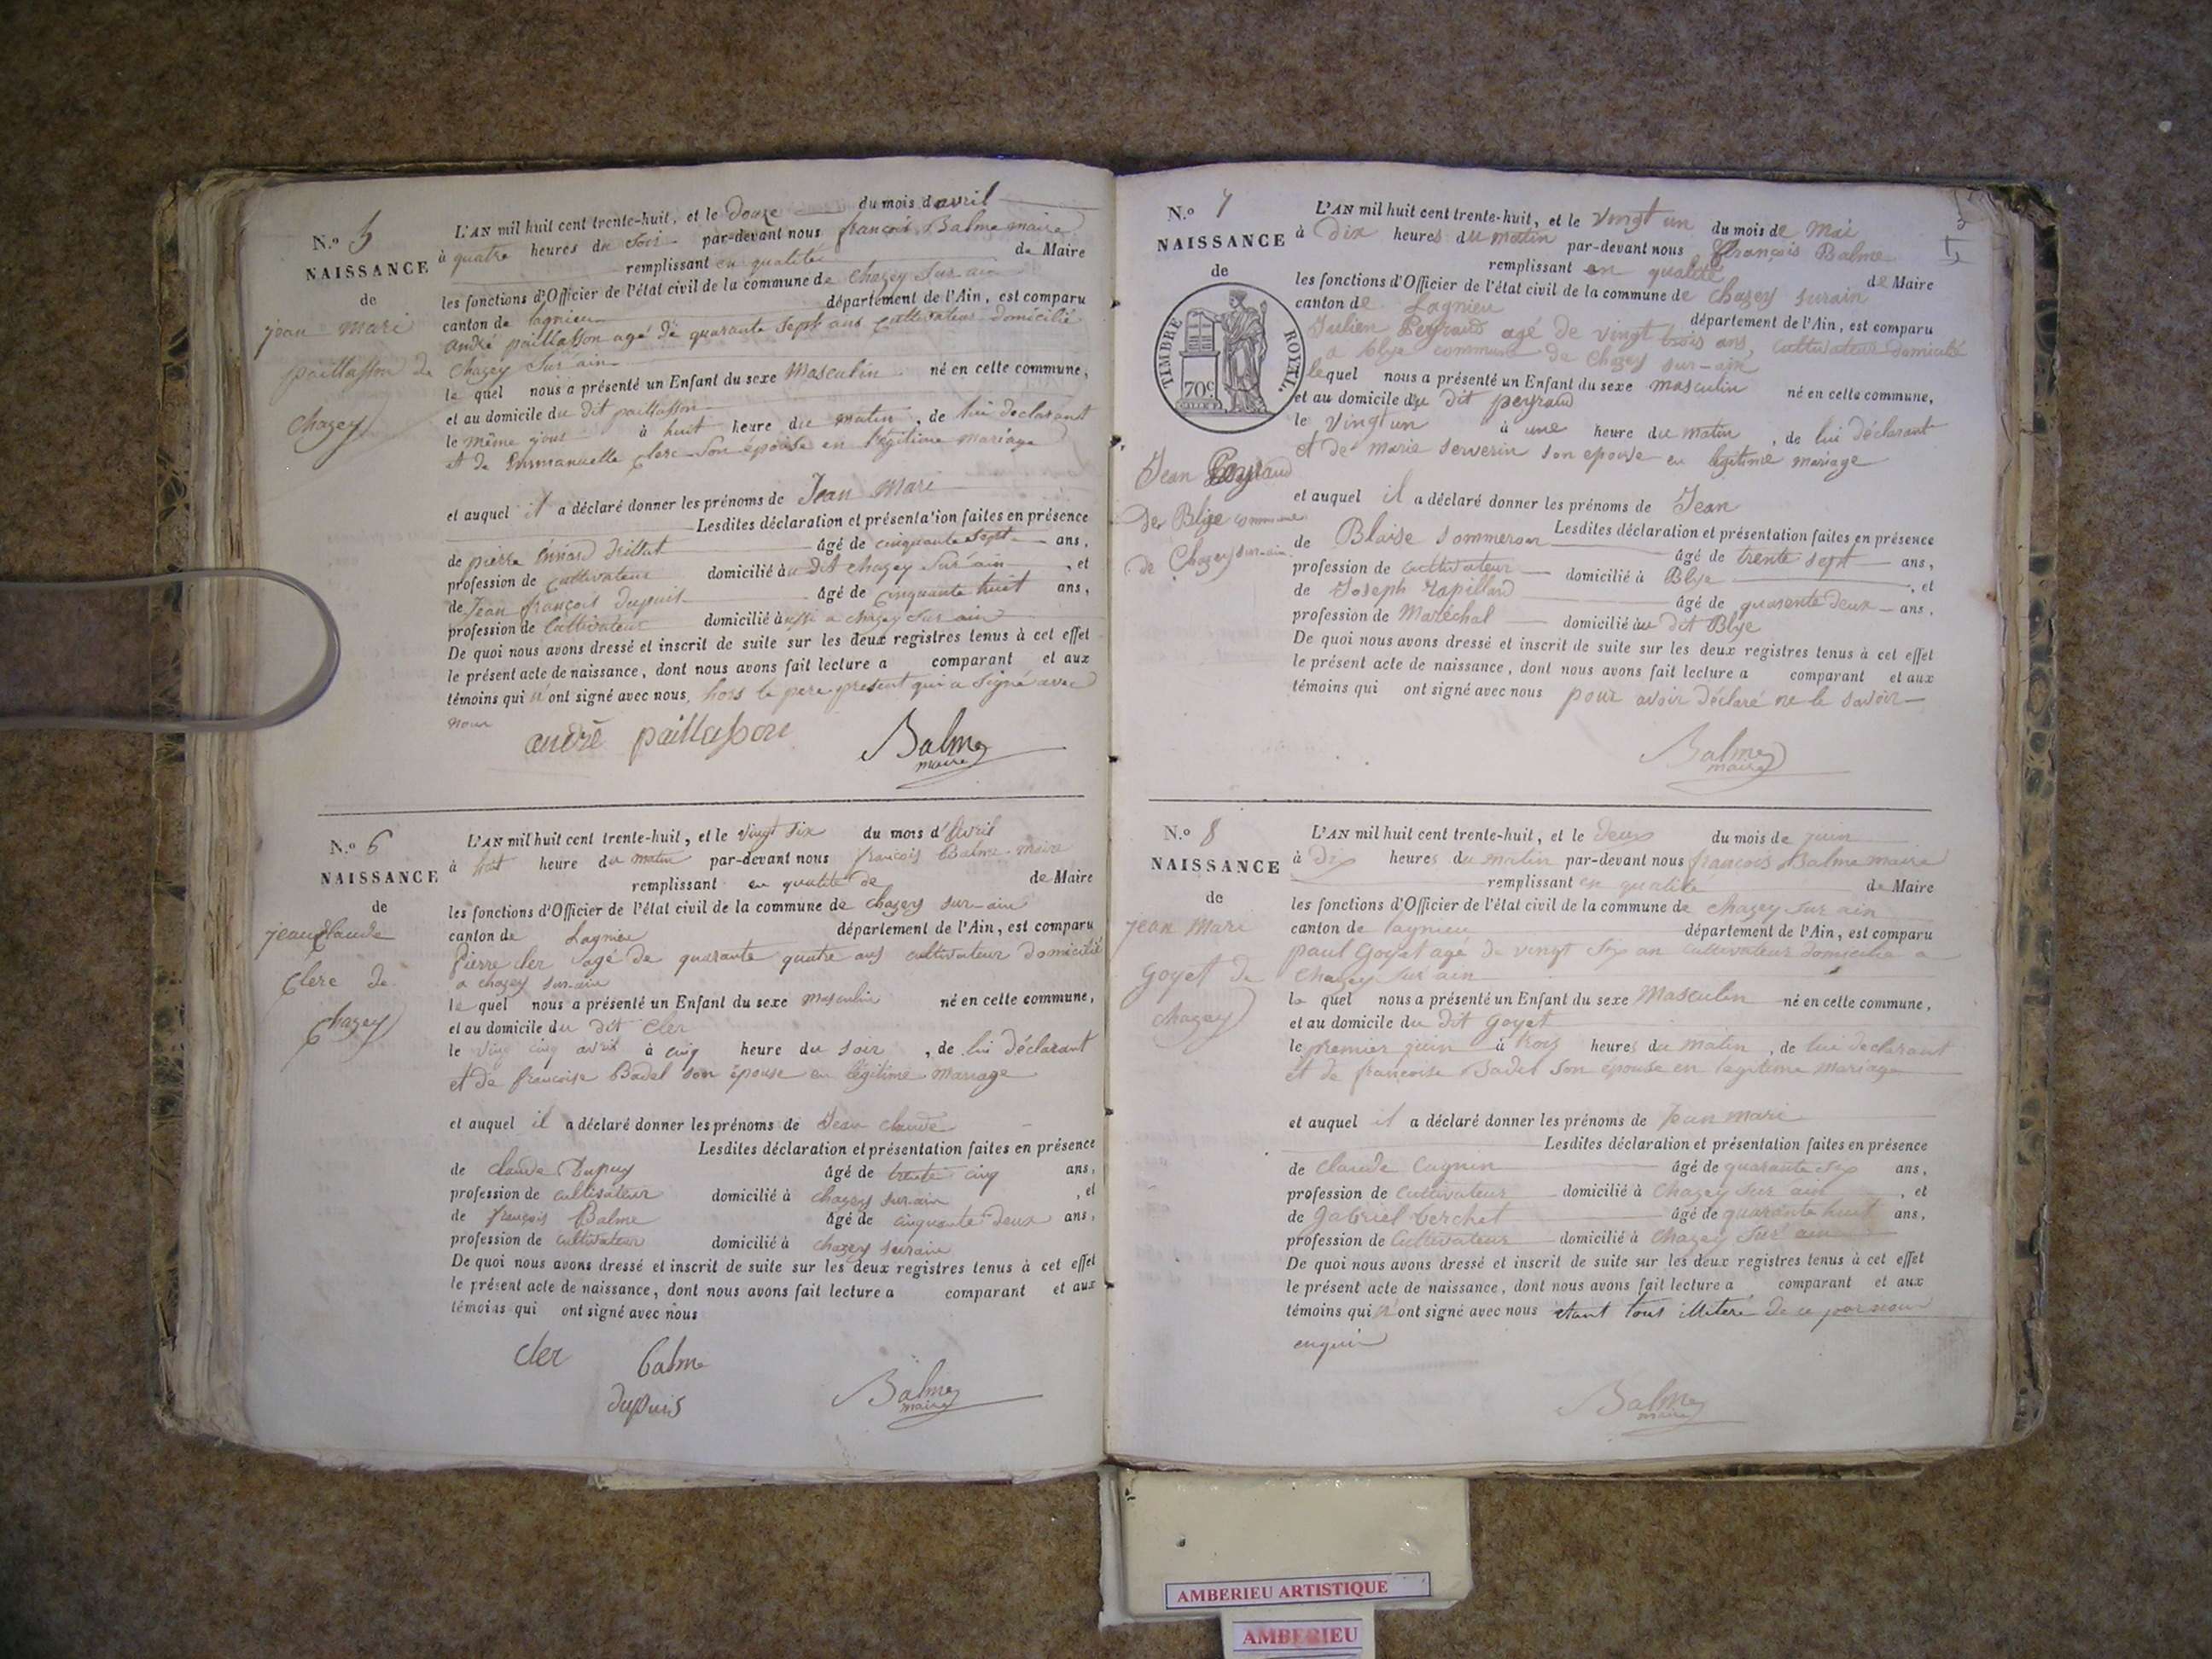 N.o 5
NAISSANCE
de
jean mari
paillasson de
Chazey
L'AN mil huit cent trente-huit, et le Douze du mois d'avril
à quatre heures du soir par-devant nous françois Balme maire
remplissant en qualité de Maire
les fonctions d'Officier de l'état civil de la commune de Chazey sur ain
canton de lagnieu département de l'Ain, est comparu
andré paillasson agé de quarante sept ans cultivateur domicilié
Chazey Sur ain
le quel nous a présenté un Enfant du sexe Masculin né en cette commune,
et au domicile du dit paillasson
le même jour à huit heure du matin, de lui declarant
et de Emmanuelle Clerc son épouse en légitime mariage
et auquel il a déclaré donner les prénoms de Jean Mari
Lesdites déclaration et présentation faites en présence
de pierre âgé de cinquante sept ans,
profession de cultivateur domicilié au dit chazey Sur ain, et
de Jean françois dupuis âgé de cinquante huit ans,
profession de Cultivateur domicilié aussi a chazey sur ain
De quoi nous avons dressé et inscrit de suite sur les deux registres tenus à cet effet
le présent acte de naissance, dont nous avons fait lecture a comparant et aux
témoins qui n'ont signé avec nous, hors le pere present qui a Signé avec
nous
andré paillasson Balme
maire
N.o 6
NAISSANCE
de
jean Claude
Clerc de
Chazey
L'AN mil huit cent trente-huit, et le vingt six du mois d'Avril
à huit heure du matin par-devant nous françois Balme maire
remplissant en qualité de de Maire
les fonctions d'Officier de l'état civil de la commune de chazey sur-ain
canton de Lagnieu département de l'Ain, est comparu
Pierre cler agé de quarante quatre ans cultivateur domicilié
a chazey sur-ain
le quel nous a présenté un Enfant du sexe masculin né en cette commune,
et au domicile du dit Cler
le vingt cinq avril à cinq heure du soir, de lui déclarant
et de françoise Badel son épouse en légitime mariage
et auquel il a déclaré donner les prénoms de Jean claude
Lesdites déclaration et présentation faites en présence
de claude Dupuy âgé de trente cinq ans,
profession de cultivateur domicilié à chazey sur ain, et
de françois Balme âgé de cinquante deux ans,
profession de cultivateur domicilié à chazey sur ain
De quoi nous avons dressé et inscrit de suite sur les deux registres tenus à cet effet
le présent acte de naissance, dont nous avons fait lecture a comparant et aux
témoins qui ont signé avec nous
cler balme
dupuis Balme
maire
N.o 7
NAISSANCE
de
TIMBRE ROYAL.
70c
Jean Peyraud
De Blye commune
de Chazey sur-ain
L'AN mil huit cent trente-huit, et le vingt un du mois de Mai
à Dix heures du matin par-devant nous François Balme
remplissant en qualité de Maire
les fonctions d'Officier de l'état civil de la commune de chazey sur ain
canton de Lagnieu département de l'Ain, est comparu
Julien Peyraud agé de vingt trois ans, cultivateur domicilié
a blye commune de Chazey sur-ain
lequel nous a présenté un Enfant du sexe masculin né en cette commune,
et au domicile du dit peyraud
le vingt un à une heure du matin, de lui déclarant
et de marie serverin son epouse en legitime mariage
et auquel il a déclaré donner les prénoms de Jean
Lesdites déclaration et présentation faites en présence
de Blaise sommeron âgé de trente sept ans,
profession de cultivateur domicilié à Blye, et
de Joseph rapillard âgé de quarente deux ans,
profession de Maréchal domicilié au dit Blye
De quoi nous avons dressé et inscrit de suite sur les deux registres tenus à cet effet
le présent acte de naissance, dont nous avons fait lecture a comparant et aux
témoins qui ont signé avec nous pour avoir déclaré ne le savoir
Balme
maire
N.o 8
NAISSANCE
de
jean Mari
Goyet de
chazey
L'AN mil huit cent trente-huit, et le deux du mois de juin
à Dix heures du matin par-devant nous françois Balme maire
remplissant en qualité de Maire
les fonctions d'Officier de l'état civil de la commune de chazey sur ain
canton de lagnieu département de l'Ain, est comparu
paul Goyet agé de vingt six an cultivateur domicilié a
Chazey sur ain
le quel nous a présenté un Enfant du sexe Masculin né en cette commune,
et au domicile du dit Goyet
le premier juin à trois heures du matin, de lui declarant
et de françoise Badel Son epouse en legitime mariage
et auquel il a déclaré donner les prénoms de Jean mari
Lesdites déclaration et présentation faites en présence
de Claude Cagnin âgé de quarante six ans,
profession de Cultivateur domicilié à Chazey sur ain, et
de Gabriel berchet âgé de quarante huit ans,
profession de Cultivateur domicilié à Chazey Sur ain
De quoi nous avons dressé et inscrit de suite sur les deux registres tenus à cet effet
le présent acte de naissance, dont nous avons fait lecture a comparant et aux
témoins qui n'ont signé avec nous étant tous illiteré de ce par nous
enquis
Balme
maire
AMBERIEU ARTISTIQUE
AMBERIEU